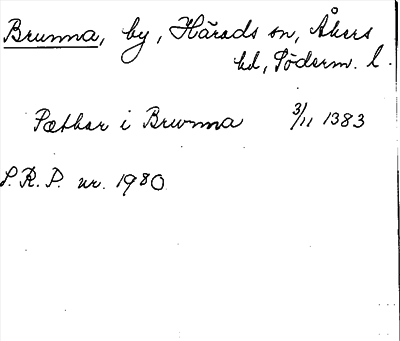 Brunna, by, Härads sn, Åkers
hd, Söderm. l.
Pæthar i Brunna 3/11 1383
S.R.P. nr. 1980